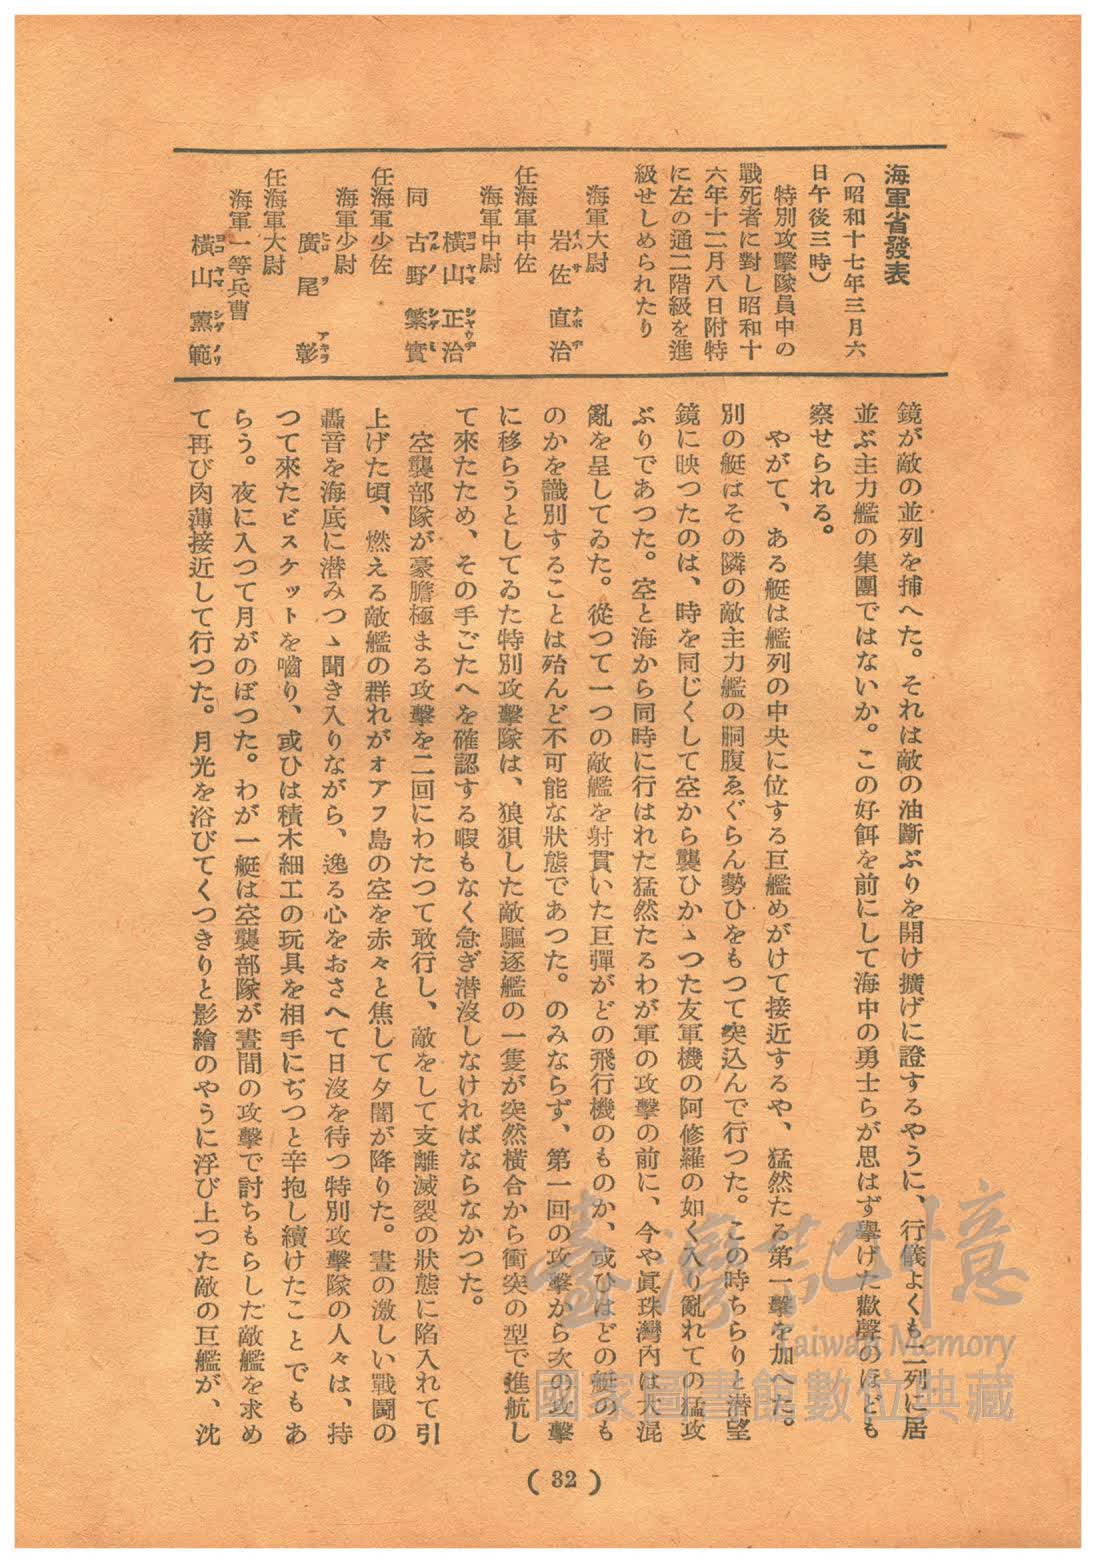 海軍省發表
(昭和十七年三月六
日午後三時)
特別攻擊隊員中の
戰死者に對し昭和十
六年十二月八日附特
に左の通二階級を進
級せしめられたり
海軍大尉
岩佐直治
イハサナホヂ
任海軍中佐
海軍中尉
橫山正治
ヨコヤマシヤウヂ
同 古野繁實
フルノシゲミ
任海軍少佐
海軍少尉
廣尾彰
ヒロヲアキラ
任海軍大尉
海軍一等兵曹
橫山薰範
ヨコヤマシゲノリ
鏡が敵の並列を捕へた。それは敵の油斷ぶりを開け擴げに證するやうに、行儀よくも二列に居
並ぶ主力艦の集團ではないか。この好餌を前にして海中の勇士らが思はず擧げた歡聲のほども
察せられる。
やがて、ある艇は艦列の中央に位する巨艦めがけて接近するや、猛然たる第一擊を加へた。
別の艇はその隣の敵主力艦の胴腹ゑぐらん勢ひをもつて突込んで行つた。この時ちらりと潜望
鏡に映つたのは、時を同じくして空から襲ひかゝつた友軍機の阿修羅の如く入り亂れての猛攻
ぶりであつた。空と海から同時に行はれた猛然たるわが軍の攻擊の前に、今や眞珠灣內は大混
亂を呈してゐた。從つて一つの敵艦を射貫いた巨彈がどの飛行機のものか、或ひはどの艇のも
のかを識別することは殆んど不可能な狀態であつた。のみならず、第一回の攻擊から次の攻擊
に移らうとしてゐた特別攻擊隊は、狼狽した敵驅逐艦の一隻が突然橫合から衝突の型で進航し
て來たため、その手ごたへを確認する暇もなく急ぎ潜沒しなければならなかつた。
空襲部隊が豪膽極まる攻擊を二回にわたつて敢行し、敵をして支離滅裂の狀態に陷入れて引
上げた頃、燃える敵艦の群れがオアフ島の空を赤々と焦して夕闇が降りた。晝の激しい戰鬪の
轟音を海底に潜みつゝ聞き入りながら、逸る心をおさへて日沒を待つ特別攻擊隊の人々は、持
つて來たビスケットを嚙り、或ひは積木細工の玩具を相手にぢつと辛抱し續けたことでもあ
らう。夜に入つて月がのぼつた。わが一艇は空襲部隊が晝間の攻擊で討ちもらした敵艦を求め
て再び肉薄接近して行つた。月光を浴びてくつきりと影繪のやうに浮び上つた敵の巨艦が、沈
(32)
臺灣記憶
Taiwan Memory
國家圖書館數位典藏